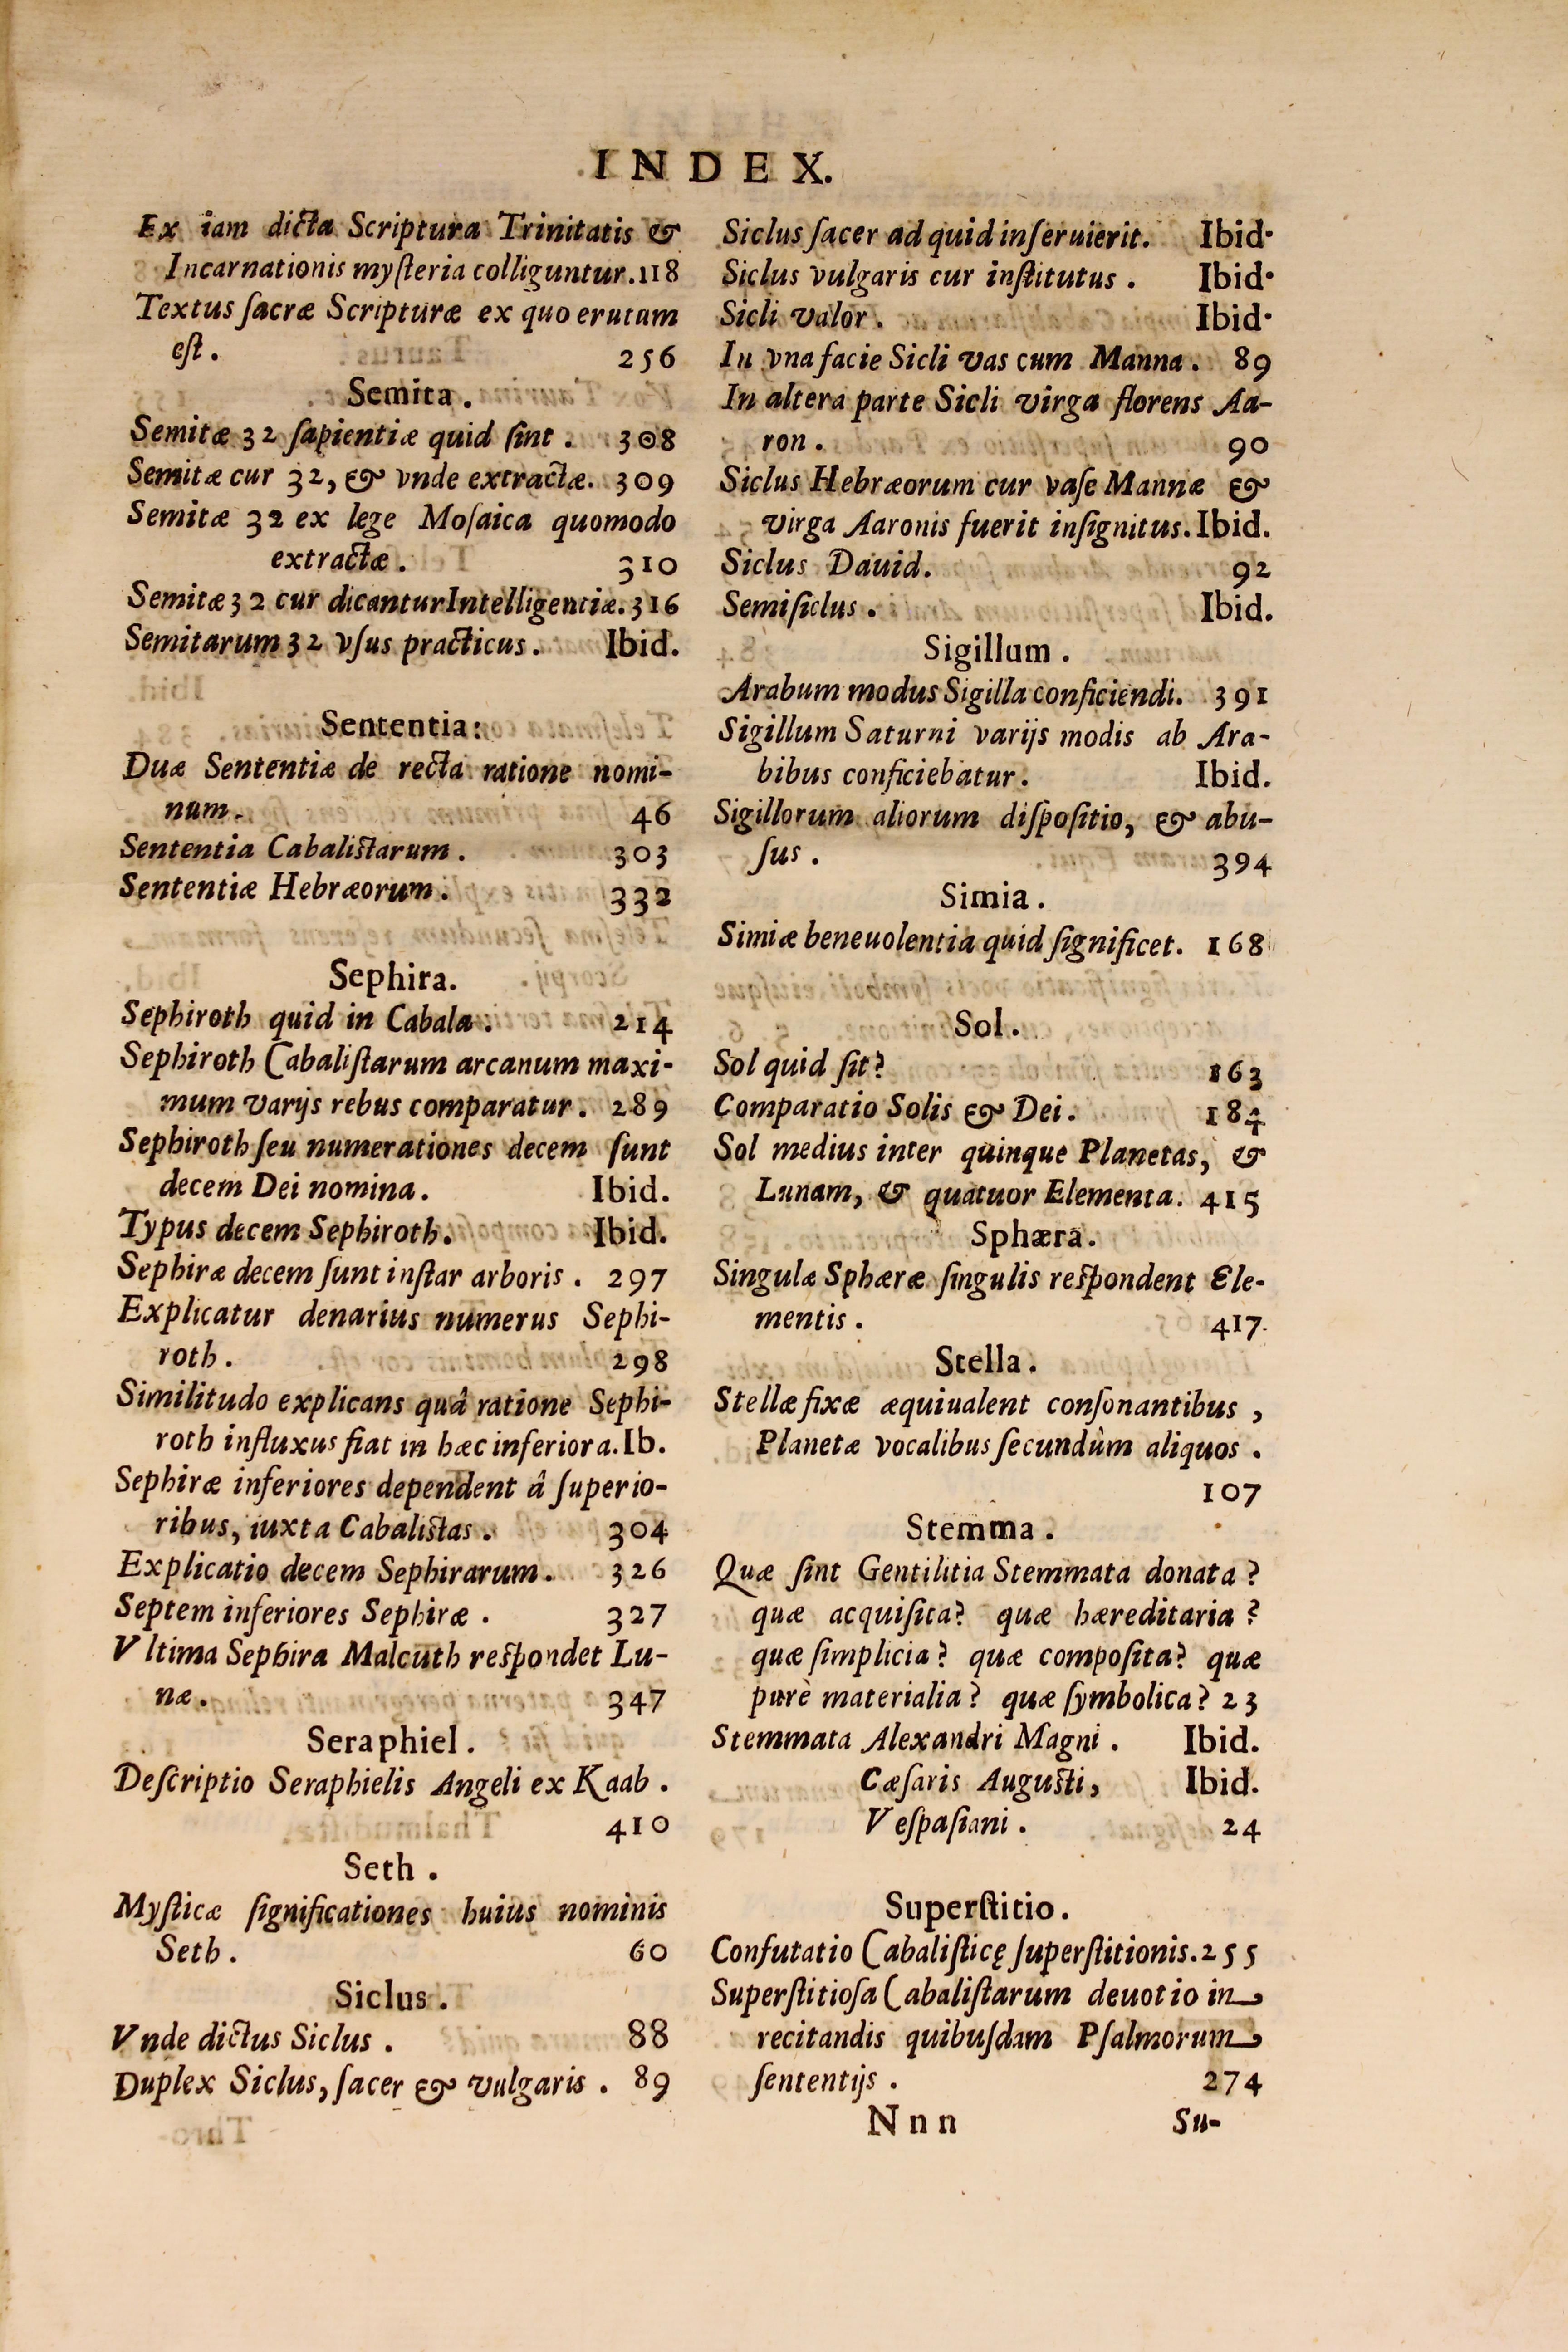 INDEX.
Ex iam dicta Scriptura Trinitatis &
Incarnationis myſteria colliguntur. 118
Textus ſacræ Scripturæ ex quo erutum
eſt. 256
Semita.
Semitæ 32 ſapientiæ quid ſint. 308
Semitæ cur 32, & vnde extractæ. 309
Semitæ 32 ex lege Moſaica quomodo
extractæ. 310
Semitæ 32 cur dicantur Intelligentiæ. 316
Semitarum 32 vſus practicus. Ibid.
Sententia:
Duæ Sententiæ de recta ratione nomi-
num. 46
Sententia Cabaliſtarum. 303
Sententiæ Hebræorum. 332
Sephira.
Sephiroth quid in Cabala. 214
Sephiroth Cabaliſtarum arcanum maxi-
mum varijs rebus comparatur. 289
Sephiroth ſeu numerationes decem ſunt
decem Dei nomina. Ibid.
Typus decem Sephiroth. Ibid.
Sephiræ decem ſunt inſtar arboris. 297
Explicatur denarius numerus Sephi-
roth. 298
Similitudo explicans quâ ratione Sephi-
roth influxus fiat in hæc inferiora. Ib.
Sephiræ inferiores dependent â ſuperio-
ribus, iuxta Cabaliſtas. 304
Explicatio decem Sephirarum. 326
Septem inferiores Sephiræ. 327
Vltima Sephira Malcuth reſpondet Lu-
næ. 347
Seraphiel.
Deſcriptio Seraphielis Angeli ex Kaab.
410
Seth.
Myſticæ ſignificationes huius nominis
Seth. 60
Siclus.
Vnde dictus Siclus. 88
Duplex Siclus, ſacer & vulgaris. 89
Siclus ſacer ad quid inſeruierit. Ibid.
Siclus vulgaris cur inſtitutus. Ibid.
Sicli valor. Ibid.
In vna facie Sicli vas cum Manna. 89
In altera parte Sicli virga florens Aa-
ron. 90
Siclus Hebræorum cur vaſe Mannæ &
virga Aaronis fuerit inſignitus. Ibid.
Siclus Dauid. 92
Semiſiclus. Ibid.
Sigillum.
Arabum modus Sigilla conficiendi. 391
Sigillum Saturni varijs modis ab Ara-
bibus conficiebatur. Ibid.
Sigillorum aliorum diſpoſitio, & abu-
ſus. 394
Simia.
Simiæ beneuolentia quid ſignificet. 168
Sol.
Sol quid ſit? 163
Comparatio Solis & Dei. 184
Sol medius inter quinque Planetas, &
Lunam, & quatuor Elementa. 415
Sphæra.
Singulæ Sphæræ ſingulis reſpondent Ele-
mentis. 417
Stella.
Stellæ fixæ æquiualent conſonantibus,
Planetæ vocalibus ſecundùm aliquos.
107
Stemma.
Quæ ſint Gentilitia Stemmata donata?
quæ acquiſita? quæ hæreditaria?
quæ ſimplicia? quæ compoſita? quæ
purè materialia? quæ ſymbolica? 23
Stemmata Alexandri Magni. Ibid.
Cæſaris Auguſti, Ibid.
Veſpaſiani. 24
Superſtitio.
Confutatio Cabaliſticę ſuperſtitionis. 255
Superſtitioſa Cabaliſtarum deuotio in
recitandis quibuſdam Pſalmorum
ſententijs. 274
Nnn Su-